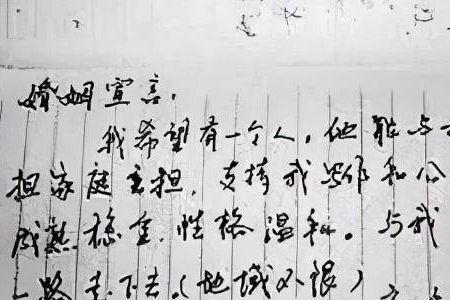 婚姻宣言。
我希望有一个人,他能与
担家庭重担,支持我写作和公
成熟稳重,性格温和。与我
一路走下去。(地域不限)